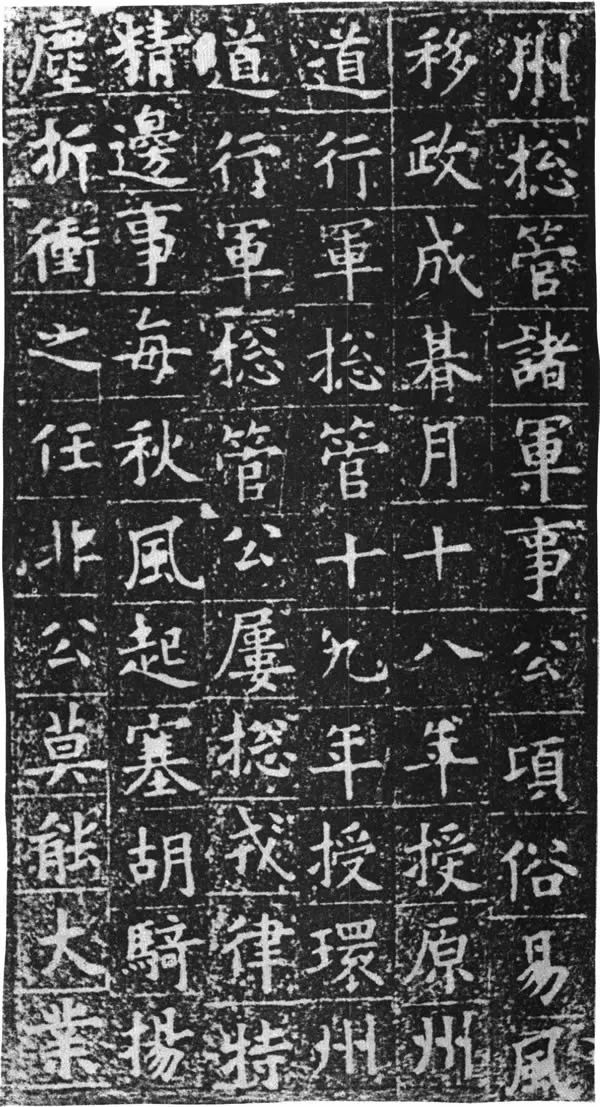 州揔管諸軍事公頃俗易風
移政成朞月十八年授原州
道行軍揔管十九年授環州
道行軍揔管公屢揔戎律特
精邊事每秋風起塞胡騎揚
塵折衝之任非公莫能大業